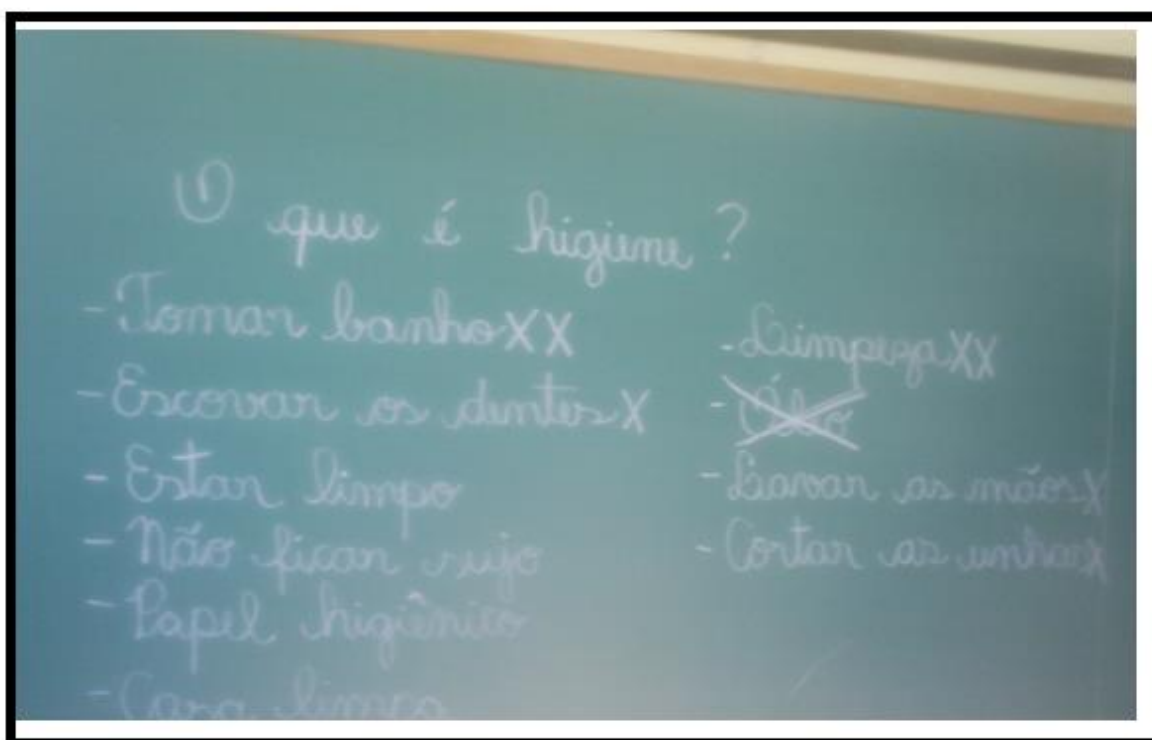 O que é higiene?
- Tomar banho XX
- Escovar os dentes X
- Estar limpo
- Não ficar sujo
- Papel higiênico
- Casa limpa
- Limpeza XX
-
- Lavar as mãos X
- Cortar as unhas X